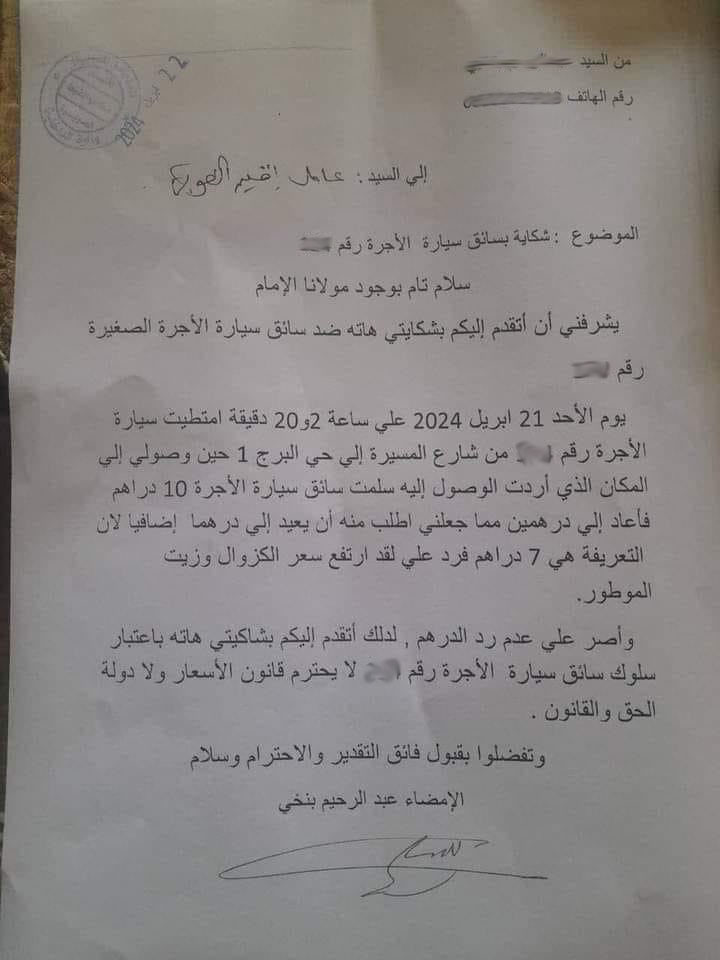 22 ابريل 2024
من السيد
رقم الهاتف
إلي السيد : عامل إقليم الصويرة
الموضوع : شكاية بسائق سيارة الأجرة رقم
سلام تام بوجود مولانا الإمام
يشرفني أن أتقدم إليكم بشكايتي هاته ضد سائق سيارة الأجرة الصغيرة
رقم
يوم الأحد 21 ابريل 2024 علي ساعة 2و20 دقيقة امتطيت سيارة
الأجرة رقم من شارع المسيرة إلي حي البرج 1 حين وصولي إلي
المكان الذي أردت الوصول إليه سلمت سائق سيارة الأجرة 10 دراهم
فأعاد إلي درهمين مما جعلني اطلب منه أن يعيد إلي درهما إضافيا لان
التعريفة هي 7 دراهم فرد علي لقد ارتفع سعر الكزوال وزيت
الموطور.
وأصر علي عدم رد الدرهم , لدلك أتقدم إليكم بشاكيتي هاته باعتبار
سلوك سائق سيارة الأجرة رقم لا يحترم قانون الأسعار ولا دولة
الحق والقانون .
وتفضلوا بقبول فائق التقدير والاحترام وسلام
الإمضاء عبد الرحيم بنخي